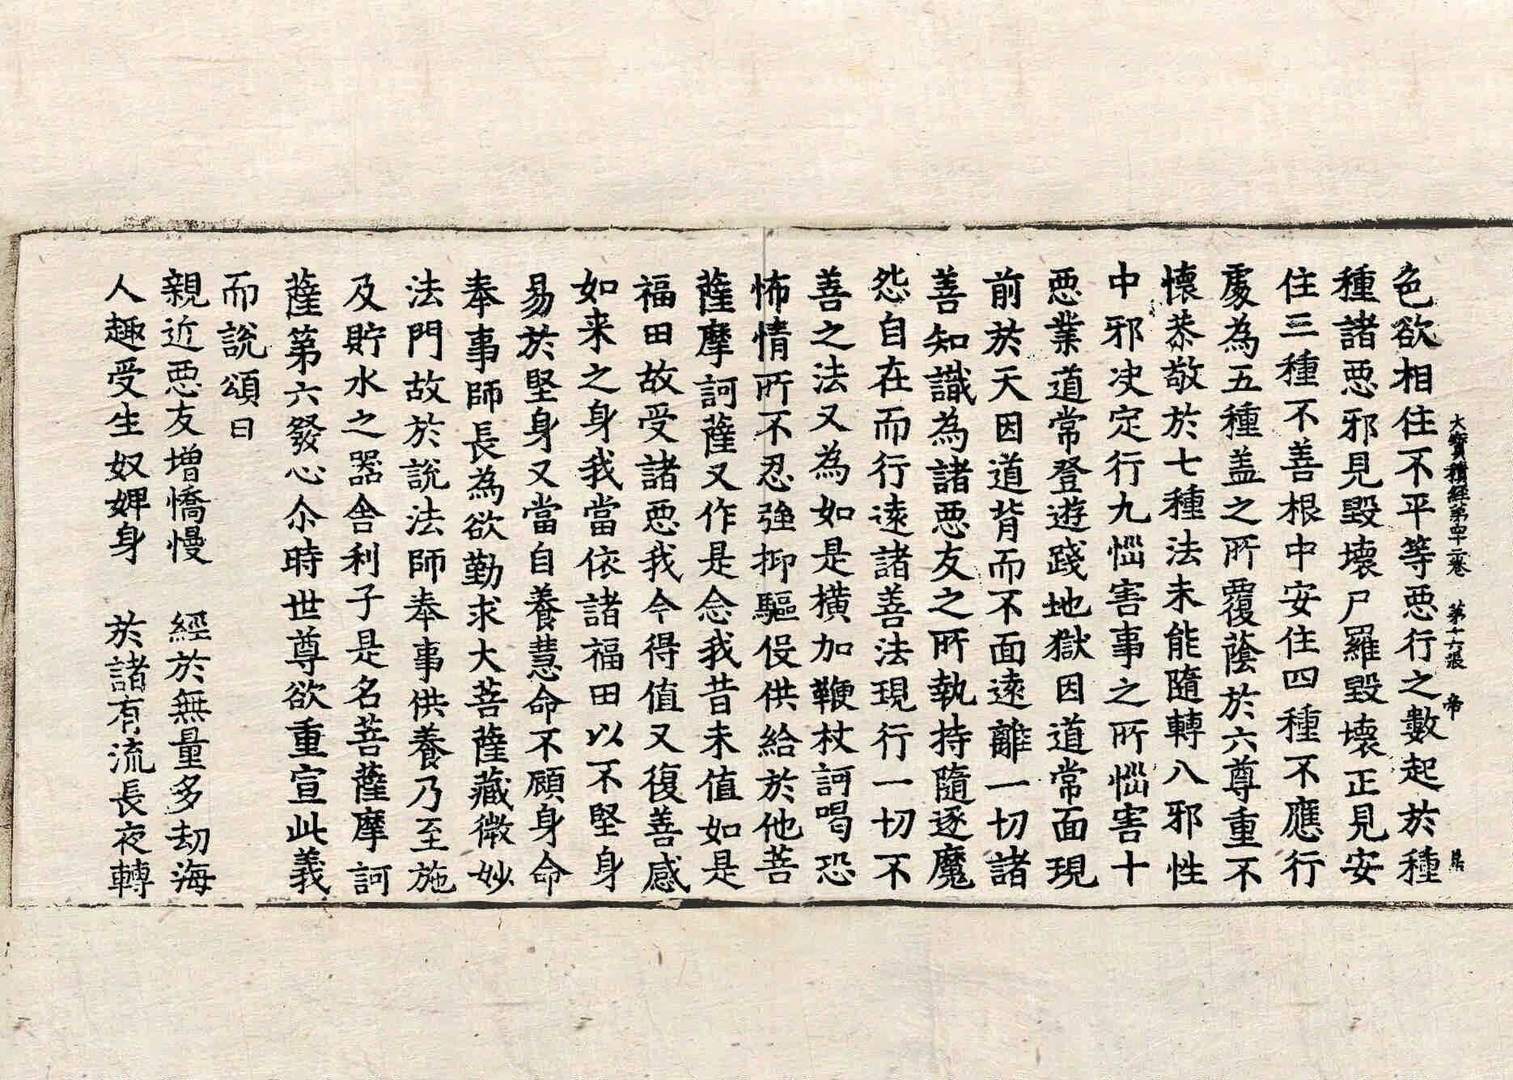 大寶積經第四十二卷 第十六張 帝
色欲相住不平等惡行之數起於種
種諸惡邪見毀壞尸羅毀壞正見安
住三種不善根中安住四種不應行
處為五種盖之所覆蔭於六尊重不
懷恭敬於七種法未能隨轉八邪性
中邪决定行九惱害事之所惱害十
惡業道常登遊踐地獄因道常面現
前於天因道背而不面遠離一切諸
善知識為諸惡友之所執持隨逐魔
怨自在而行遠諸善法現行一切不
善之法又為如是橫加鞭杖訶喝恐
怖情所不忍強抑驅役供給於他菩
薩摩訶薩又作是念我昔未值如是
福田故受諸惡我今得值又復善感
如来之身我當依諸福田以不堅身
易於堅身又當自養慧命不顧身命
奉事師長為欲勤求大菩薩藏微妙
法門故於說法師奉事供養乃至施
及貯水之器舍利子是名菩薩摩訶
薩第六發心尒時世尊欲重宣此義
而說頌曰
親近惡友增憍慢 經於無量多劫海
人趣受生奴婢身 於諸有流長夜轉